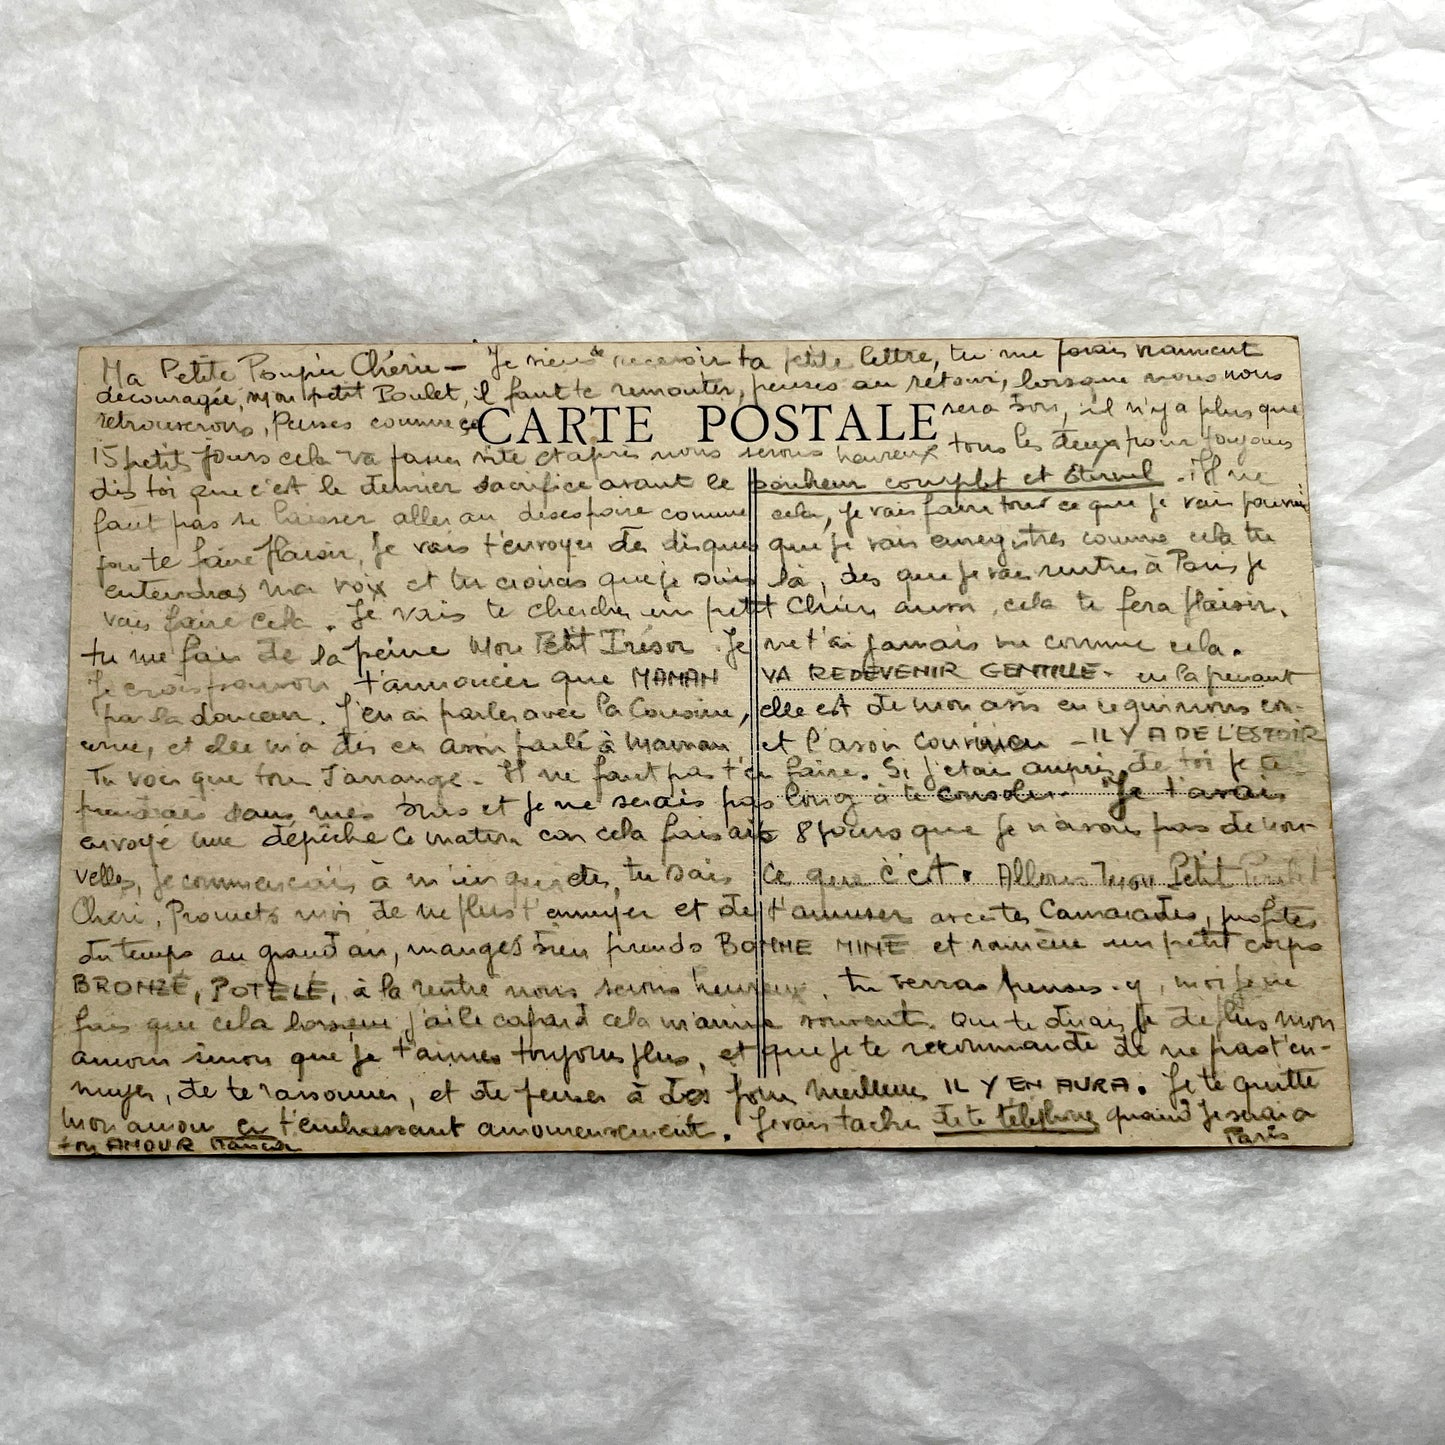 Ma Petite Poupée Chérie — Je viens de recevoir ta petite lettre, tu me parais vraiment
découragée, mon petit Poulet, il faut te remonter, penses au retour, lorsque nous nous
retrouverons, Penses comme ça sera bon, il n'y a plus que
CARTE POSTALE
15 petits jours cela va passer vite et après nous serons heureux tous les deux pour toujours
dis toi que c'est le dernier sacrifice avant le bonheur complet et éternel. Il ne
faut pas se laisser aller au desespoire comme cela, je vais faire tout ce que je vais pouvoir
pour te faire plaisir, Je vais t'envoyer des disques que je vais enregistrer comme cela tu
entendras ma voix et tu croiras que je suis là, des que je vais rentrer à Paris je
vais faire cela. Je vais te chercher un petit Chien aussi, cela te fera plaisir.
tu me fais de la peine Mon Petit Trésor. Je ne t'ai jamais vu comme cela.
Je crois pouvoir t'annoncer que MAMAN VA REDEVENIR GENTILLE - en la prenant
par la douceur. J'en ai parler avec la Cousine, elle est de mon avis en ce qui nous con-
cerne, et elle m'a dis en avoir parlé à Maman et l'avoir convaincu - IL Y A DE L'ESPOIR
Tu vois que tous s'arrange. Il ne faut pas t'en faire. Si j'etais auprès de toi je te
prendrais dans mes bras et je ne serais pas long à te consoler. Je t'avais
envoyé une dépêche ce matin car cela faisait 8 jours que je n'avais pas de nou-
velles, je commençais à m'inquiéter, tu sais ce que c'est. Allons mon Petit Poulet
Chéri, Promets moi de ne plus t'ennuyer et de t'amuser avec tes Camarades, profites
du temps au grand air, manges bien prends BONNE MINE et ramène un petit corps
BRONZÉ, POTELÉ, à la rentré nous serons heureux. Tu verras penses-y, moi je ne
fais que cela lorsque j'ai le cafard cela m'arrive souvent. Que te dirais je de plus mon
amour sinon que je t'aimes toujours plus, et que je te recommande de ne pas t'en-
nuyer, de te raisonner, et de penser à des jours meilleurs IL Y EN AURA. Je te quitte
mon amour en t'embrassant amoureusement. Je vais tacher de te téléphone quand je serai a
Paris
ton AMOUR